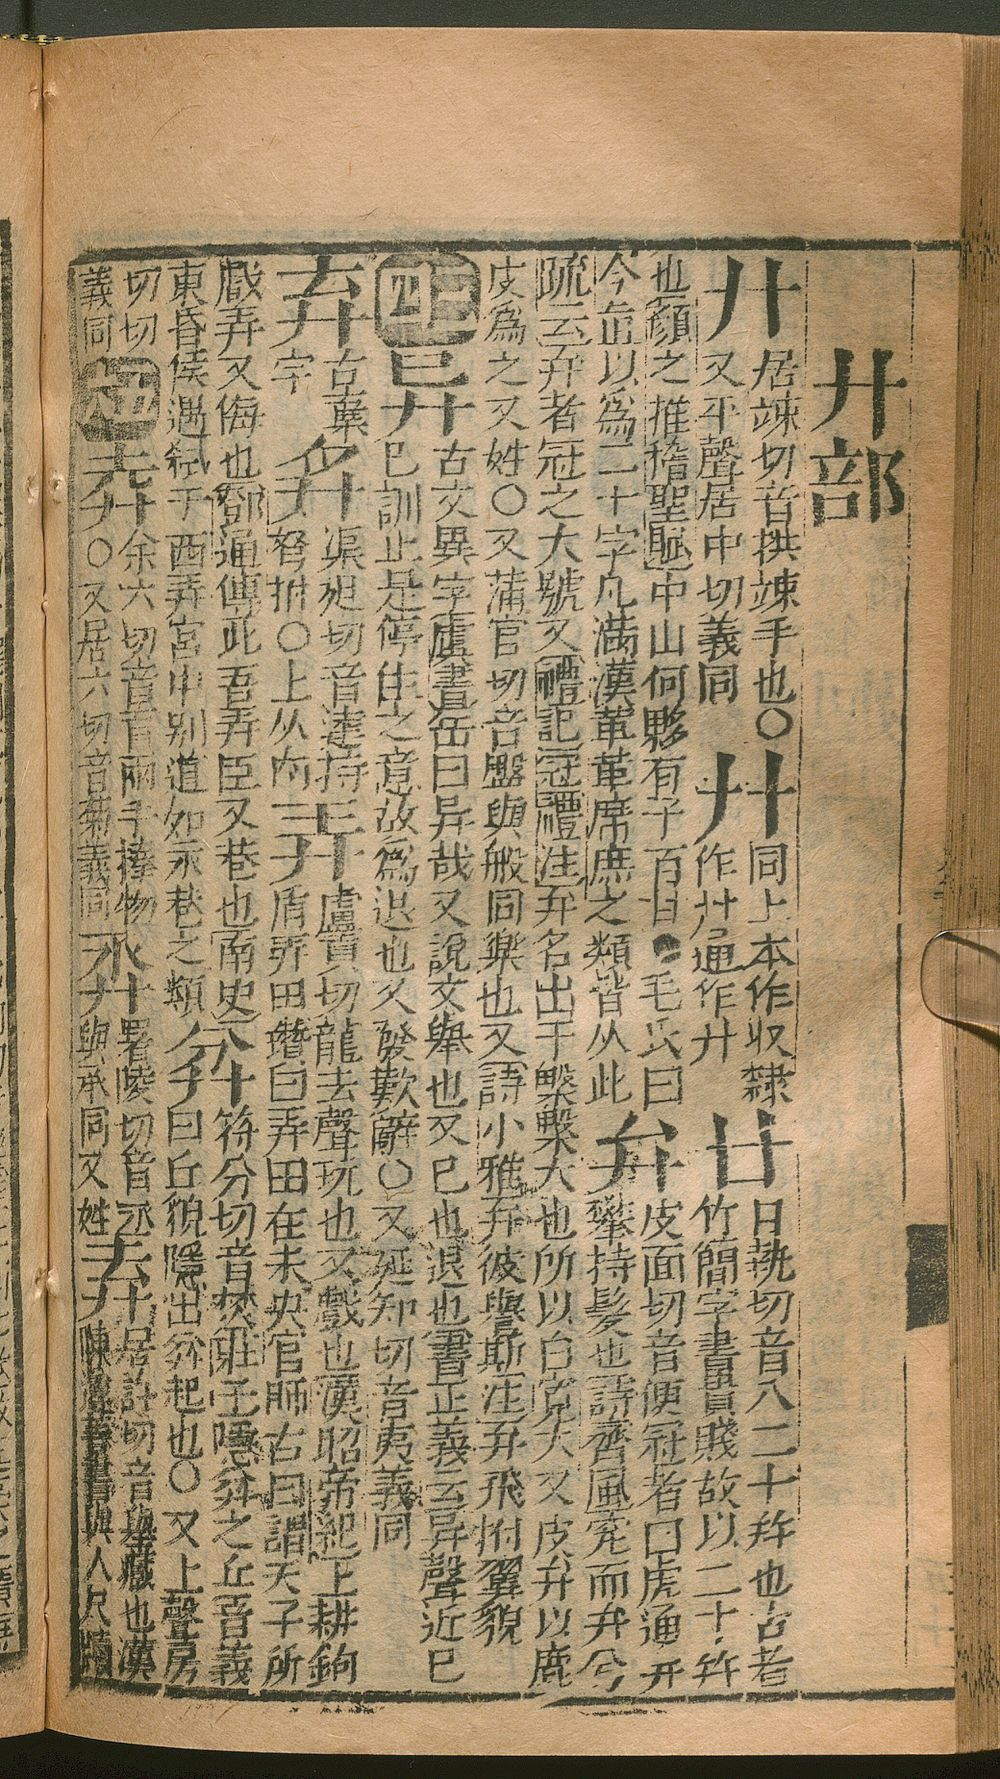 廾部
廾 居竦切音拱竦手也○又平聲居中切義同
廾 同上本作収隸作廾通作廾
廿 日執切音八二十幷也古者竹簡字書貴賤故以二十幷
也顏之推擔聖賦中山何夥有子百廿○毛氏曰今直以為二十字凡滿漢革革席庶之類皆从此
弁 皮面切音便冠者曰虎通弁攀持髮也詩齊風突而弁兮
疏云弁者冠之大號又禮記冠禮注弁名出于槃槃大也所以白寬大又皮弁以鹿
皮為之又姓○又蒲官切音盤與般同樂也又詩小雅弁彼鸒斯注弁飛拊翼貌
四 异 古文異字虞書岳曰异哉又說文舉也又已也退也書正義云异聲近已
已訓止是停住之意故為退也又發歎辭○又延知切音夷義同
弃 古棄字
弅 渠㞾切音達持弩拊○上从肉
弄 盧貢切龍去聲玩也又戲也漢昭帝紀上耕鉤盾弄田瓚曰弄田在未央宮師古曰謂天子所
戲弄又侮也鄧通傳此吾弄臣又巷也南史東昏侯遇弒于西弄宮中別道如永巷之類
弅 符分切音焚莊子隱弅之丘音義曰丘貌隱出弅起也○又上聲房
切切義同
余六切音育兩手捧物○又居六切音菊義同
署陵切音丞與承同又姓
弆 居許切音舉藏也漢陳遵善書與人尺牘